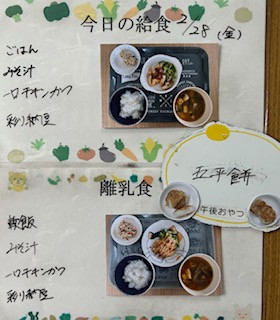 今日の給食 2/28 (金)
ごはん
みそ汁
一口チキンカツ
彩り納豆
五平餅
午後おやつ
離乳食
軟飯
みそ汁
一口チキンカツ
彩り納豆